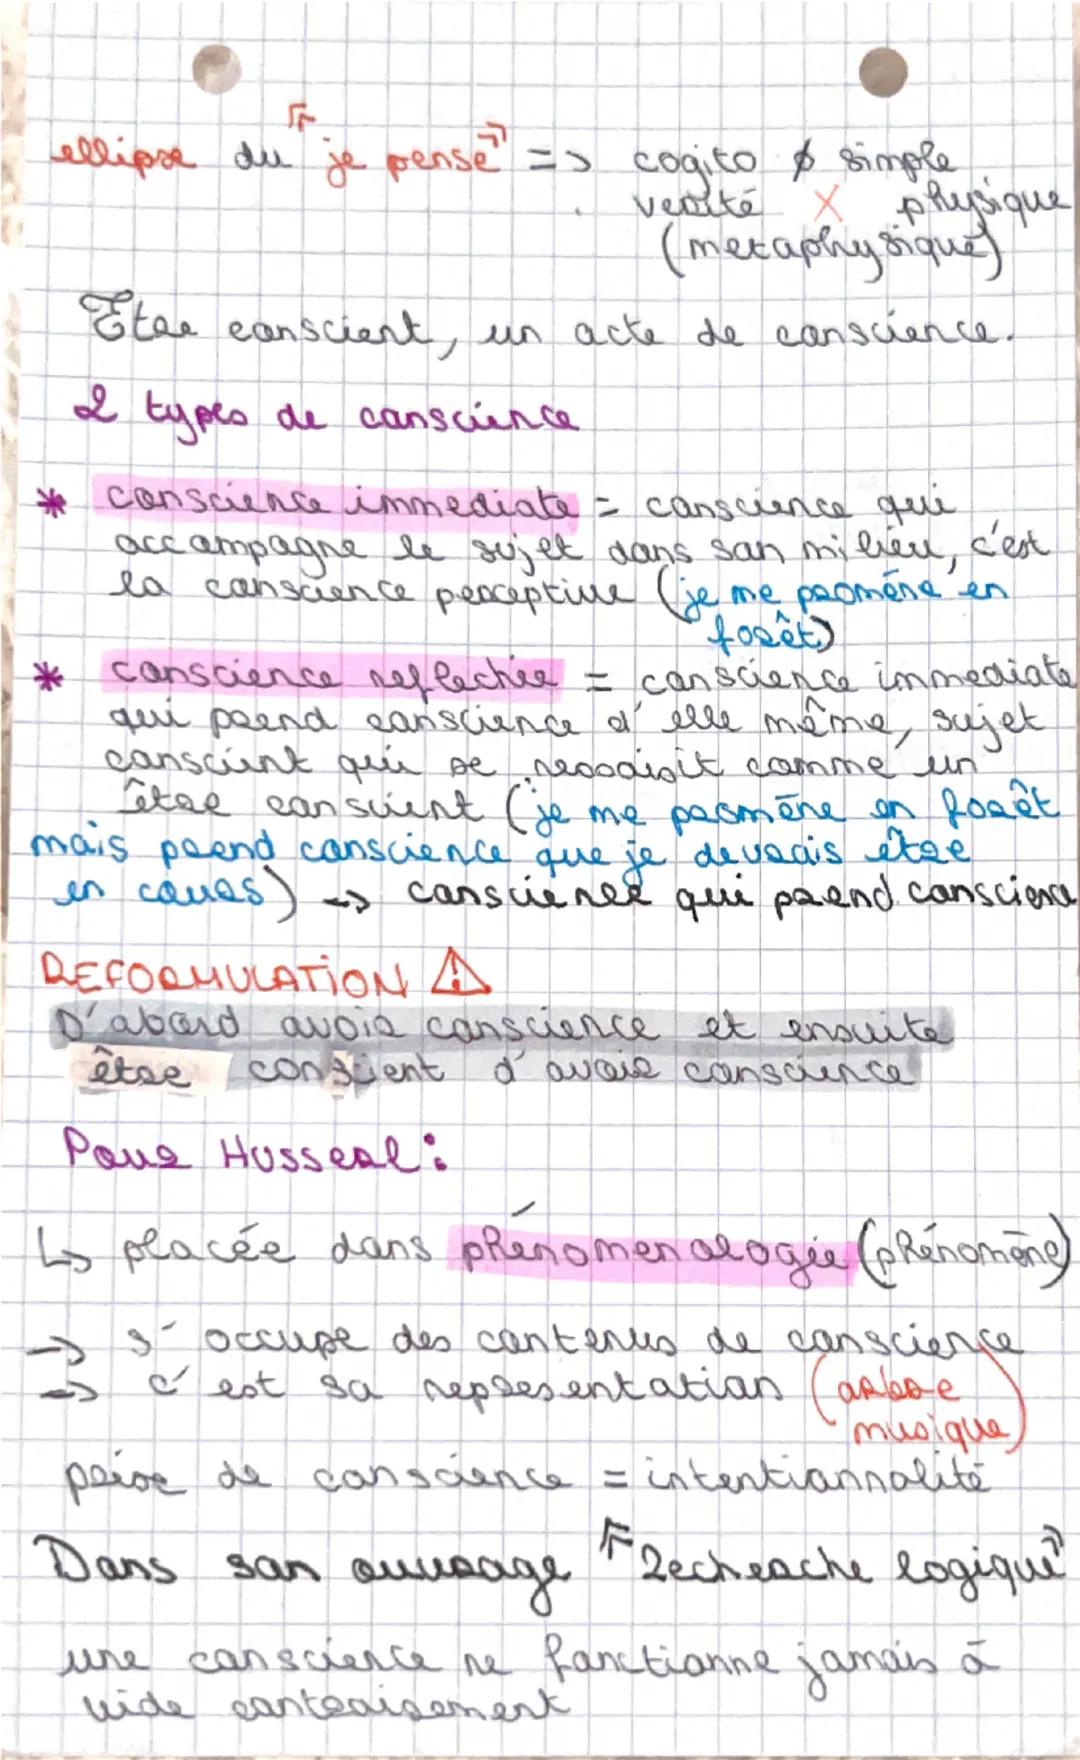 ellipse du "je pense" => cogito ∅ simple
verité X physique
(metaphysique)
Etre conscient, un acte de conscience.
2 types de conscience
* conscience immediate = conscience qui
accompagne le sujet dans son milieu, c'est
la conscience perceptive (je me promène en
forêt)
* conscience reflechie = conscience immediate
qui prend conscience d'elle même, sujet
conscient qui se
être conscient (je me promène en forêt
mais prend conscience que je devrais être
en cours) -> conscience qui prend conscience
REFORMULATION ⚠
D'abord avoir conscience et ensuite
être conscient d'avoir conscience
Pour Husserl:
↳ placée dans phénomenologie (phénomène)
-> s'occupe des contenus de conscience
-> c'est sa representation (arbre
musique)
prise de conscience = intentionnalité
Dans son ouvrage "Recherche logique"
une conscience ne fonctionne jamais à
vide contrairement